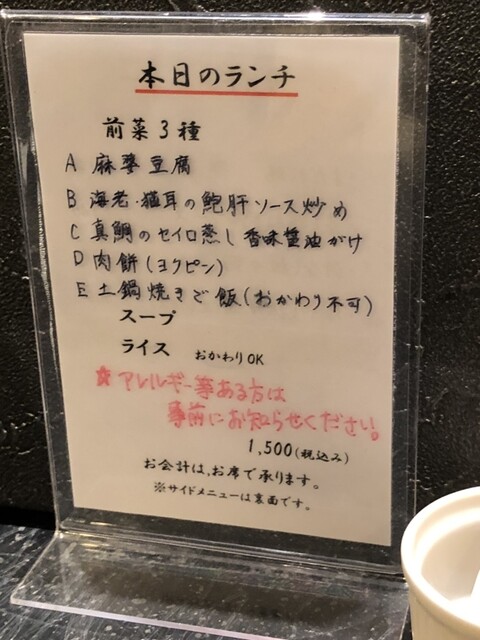 本日のランチ
前菜3種
A 麻婆豆腐
B 海老・猫耳の鮑肝ソース炒め
C 真鯛のセイロ蒸し香味醤油がけ
D 肉餅(ヨクピン)
E 土鍋焼きご飯(おかわり不可)
スープ
ライス おかわりOK
☆アレルギー等ある方は
事前にお知らせください。
1,500(税込み)
お会計は、お席で承ります。
※サイドメニューは裏面です。